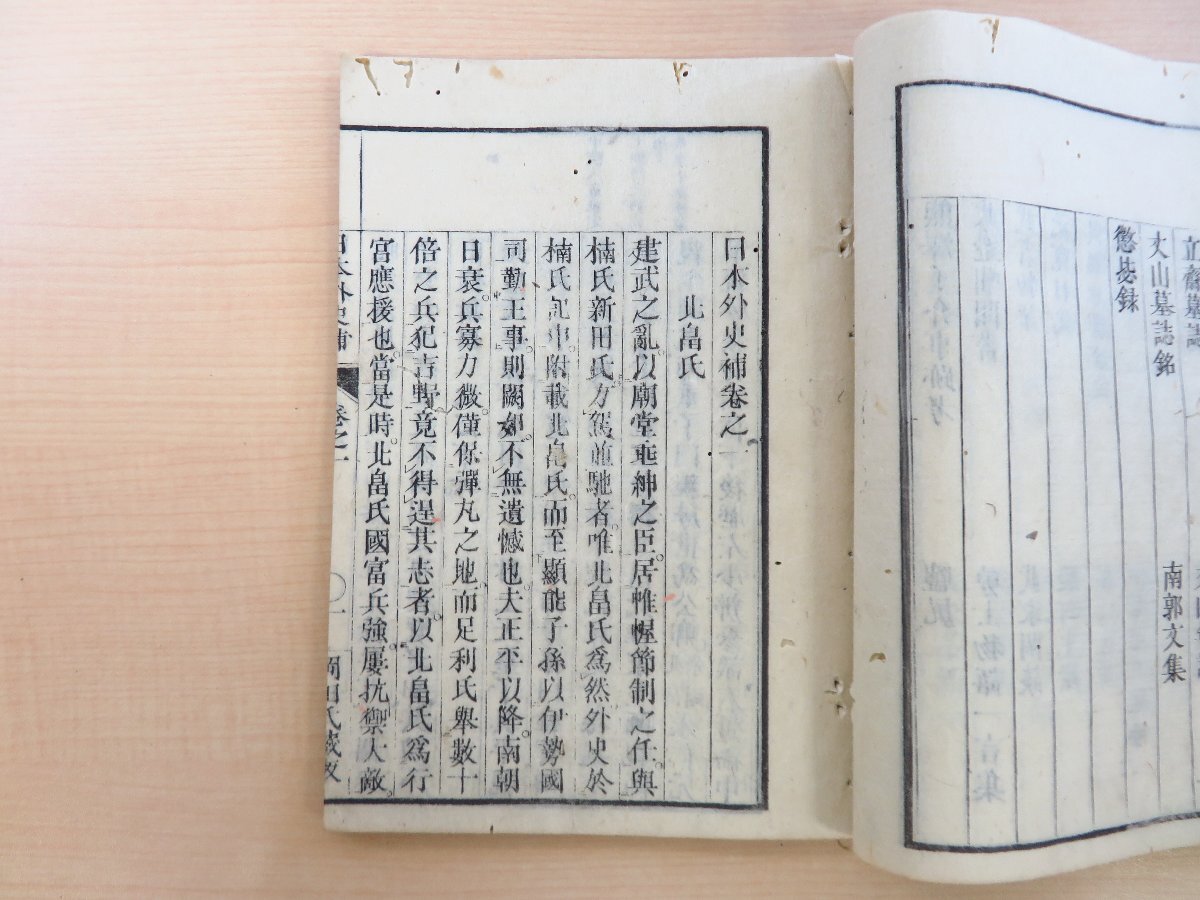 丈山墓誌銘
南郭文集
懲毖録
日本外史補卷之一
北畠氏
建武之亂。以廟堂垂紳之臣。居帷幄節制之任。與
楠氏新田氏方駕並馳者。唯北畠氏爲然。外史於
楠氏記中。附載北畠氏。而至顯能子孫以伊勢國
司勤王事。則闕如。不無遺憾也。夫正平以降。南朝
日衰。兵寡力微。僅保彈丸之地。而足利氏舉數十
倍之兵犯吉野。竟不得逞其志者。以北畠氏爲行
宮應援也。當是時。北畠氏國富兵強。屢抗禦大敵。
日本外史補 卷之一 〇一 岡田氏藏